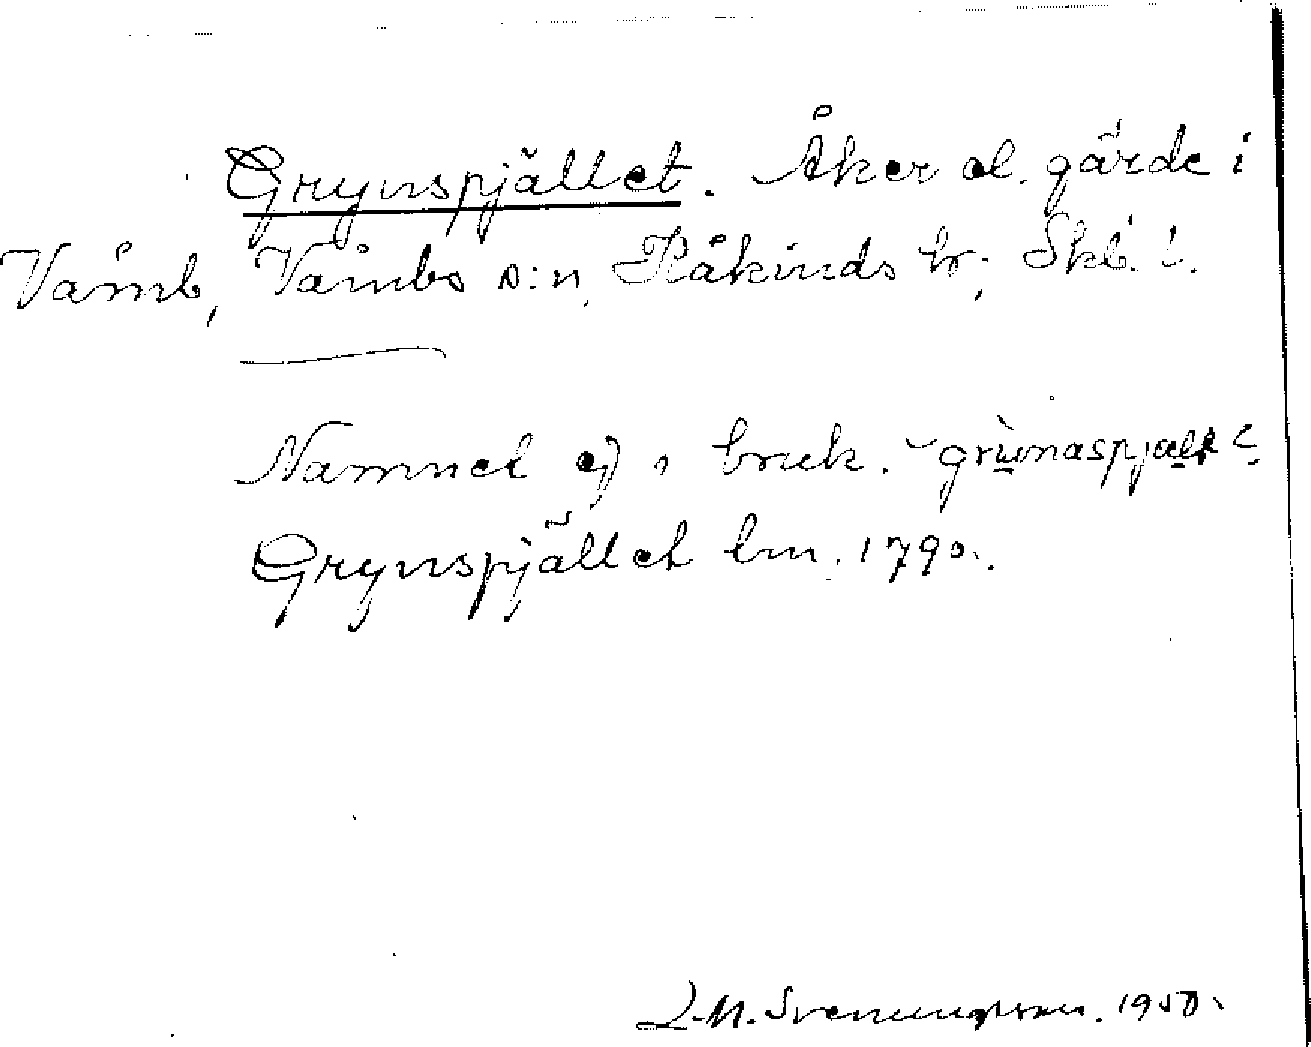 Grynspjället. Åker el. gärde i
Våmb, Våmbs s:n, Kåkinds hr; Skb. l.
Namnet ej i bruk.
Grynspjället lm. 1790.
L.M. Svenungsson. 1950.